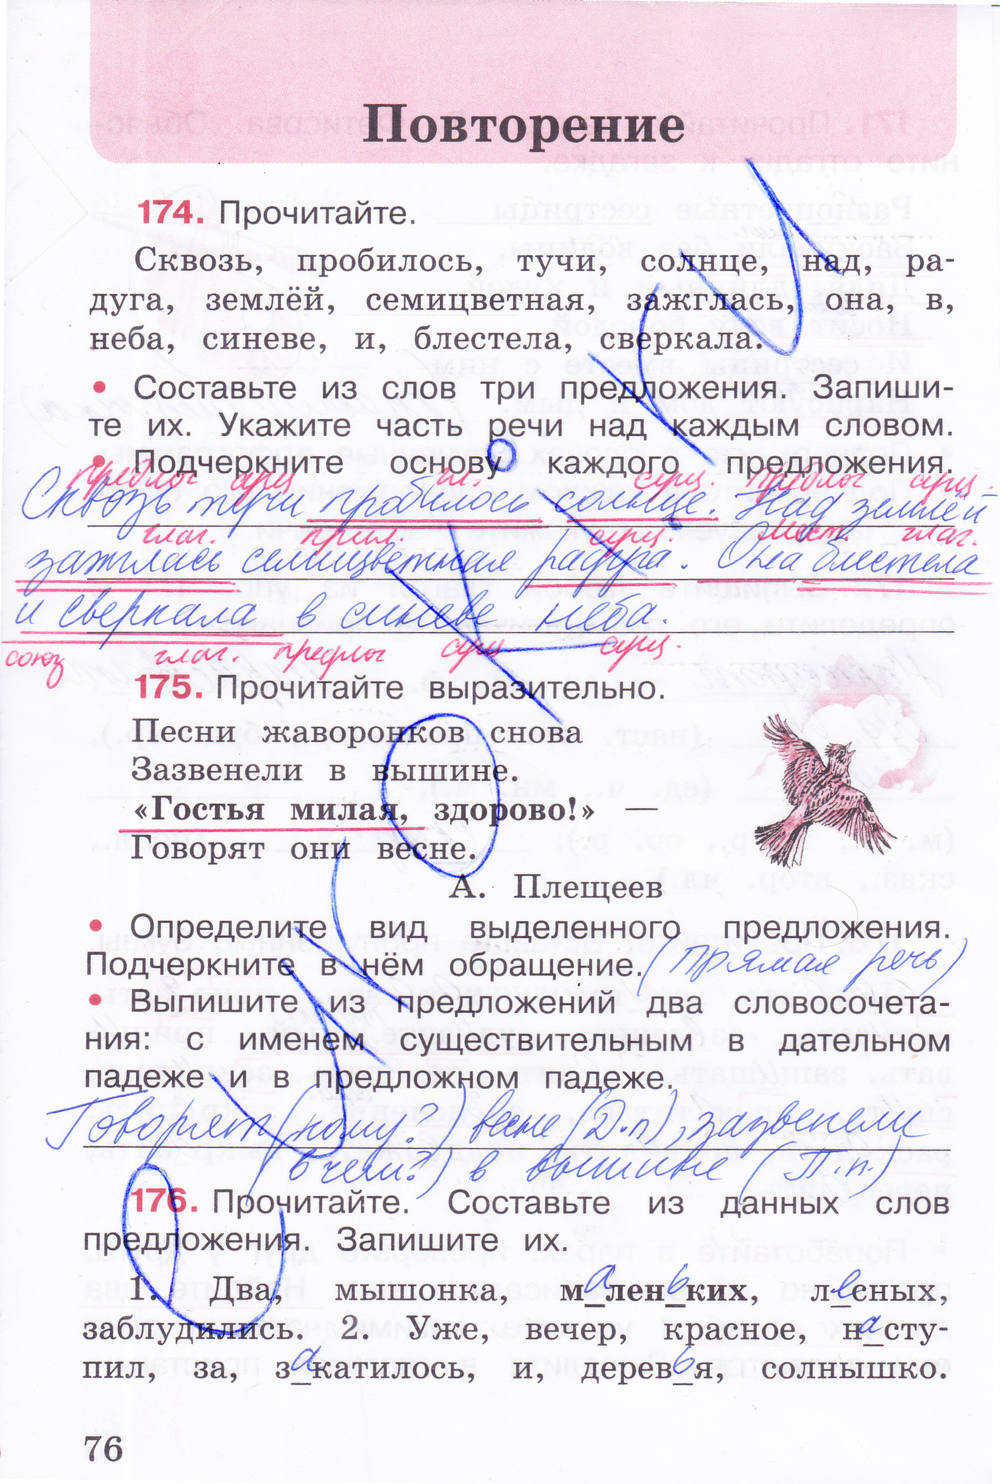 Повторение
174. Прочитайте.
Сквозь, пробилось, тучи, солнце, над, ра-
дуга, землёй, семицветная, зажглась, она, в,
неба, синеве, и, блестела, сверкала.
• Составьте из слов три предложения. Запиши-
те их. Укажите часть речи над каждым словом.
• Подчеркните основу каждого предложения.
предлог сущ. гл. сущ. предлог сущ.
Сквозь тучи пробилось солнце. Над землёй
глаг. прил. сущ. мест. глаг.
зажглась семицветная радуга. Она блестела
и сверкала в синеве неба
союз глаг. предлог сущ. сущ.
175. Прочитайте выразительно.
Песни жаворонков снова
Зазвенели в вышине.
«Гостья милая, здорово!» —
Говорят они весне.
А. Плещеев
• Определите вид выделенного предложения.
Подчеркните в нём обращение. (прямая речь)
• Выпишите из предложений два словосочета-
ния: с именем существительным в дательном
падеже и в предложном падеже.
Говорят (кому?) весне (Д.п), зазвенели
(в чем?) в вышине (П.п.)
176. Прочитайте. Составьте из данных слов
предложения. Запишите их.
1. Два, мышонка, маленьких, лесных,
заблудились. 2. Уже, вечер, красное, насту-
пил, за, закатилось, и, деревья, солнышко.
76